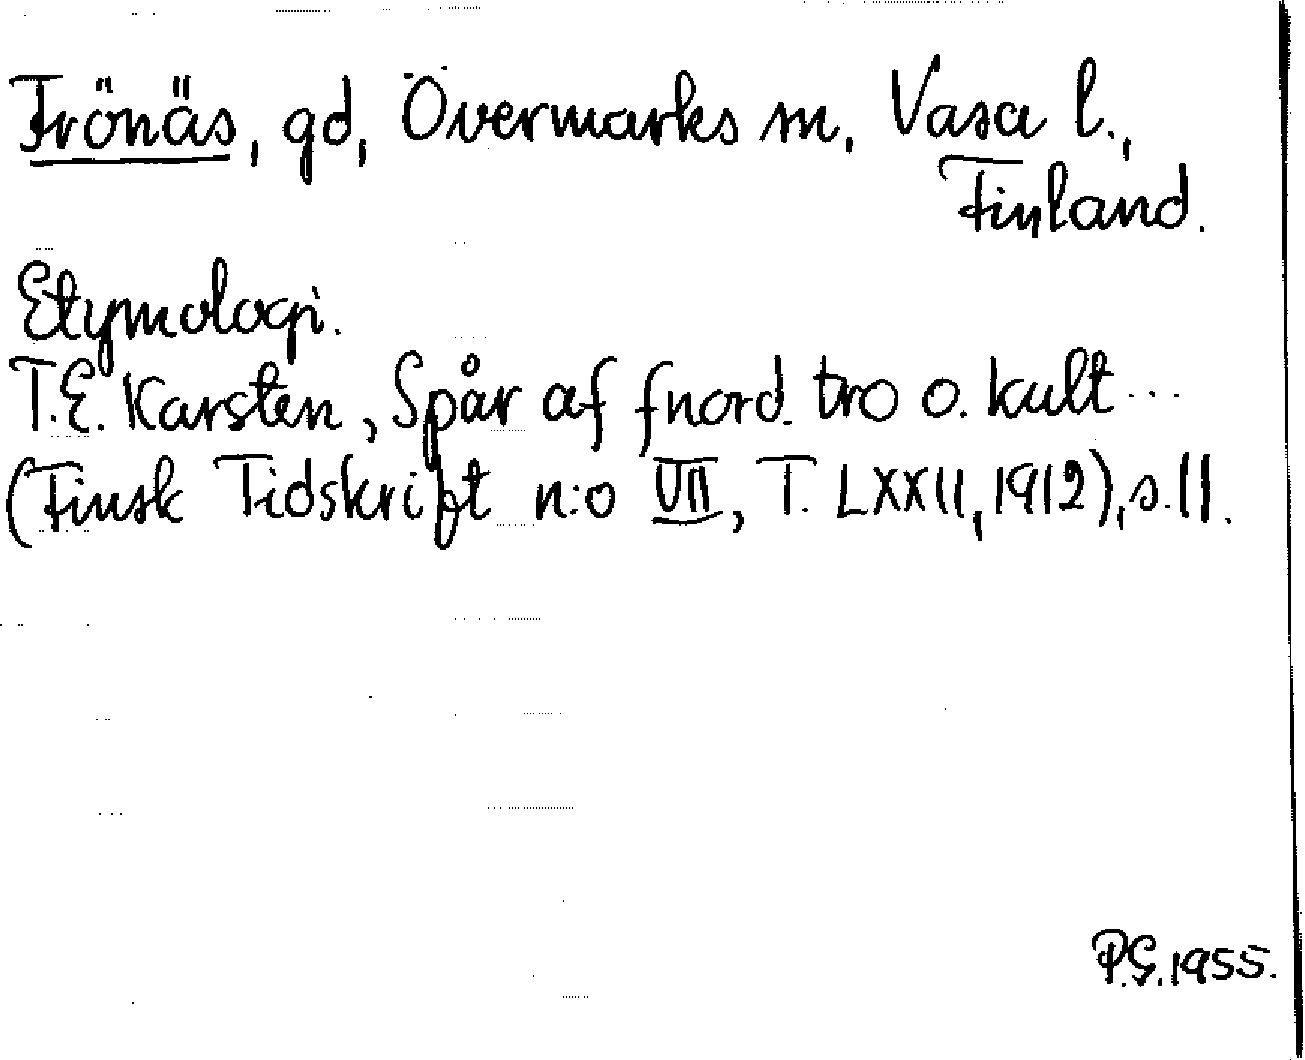 Frönäs, gd, Övermarks sn, Vasa l.,
Finland.
Etymologi.
T.E. Karsten, Spår af fnord. tro o. kult...
(Finsk Tidskrift n:o VII, T. LXXII, 1912), s. 11.
P.G. 1955.